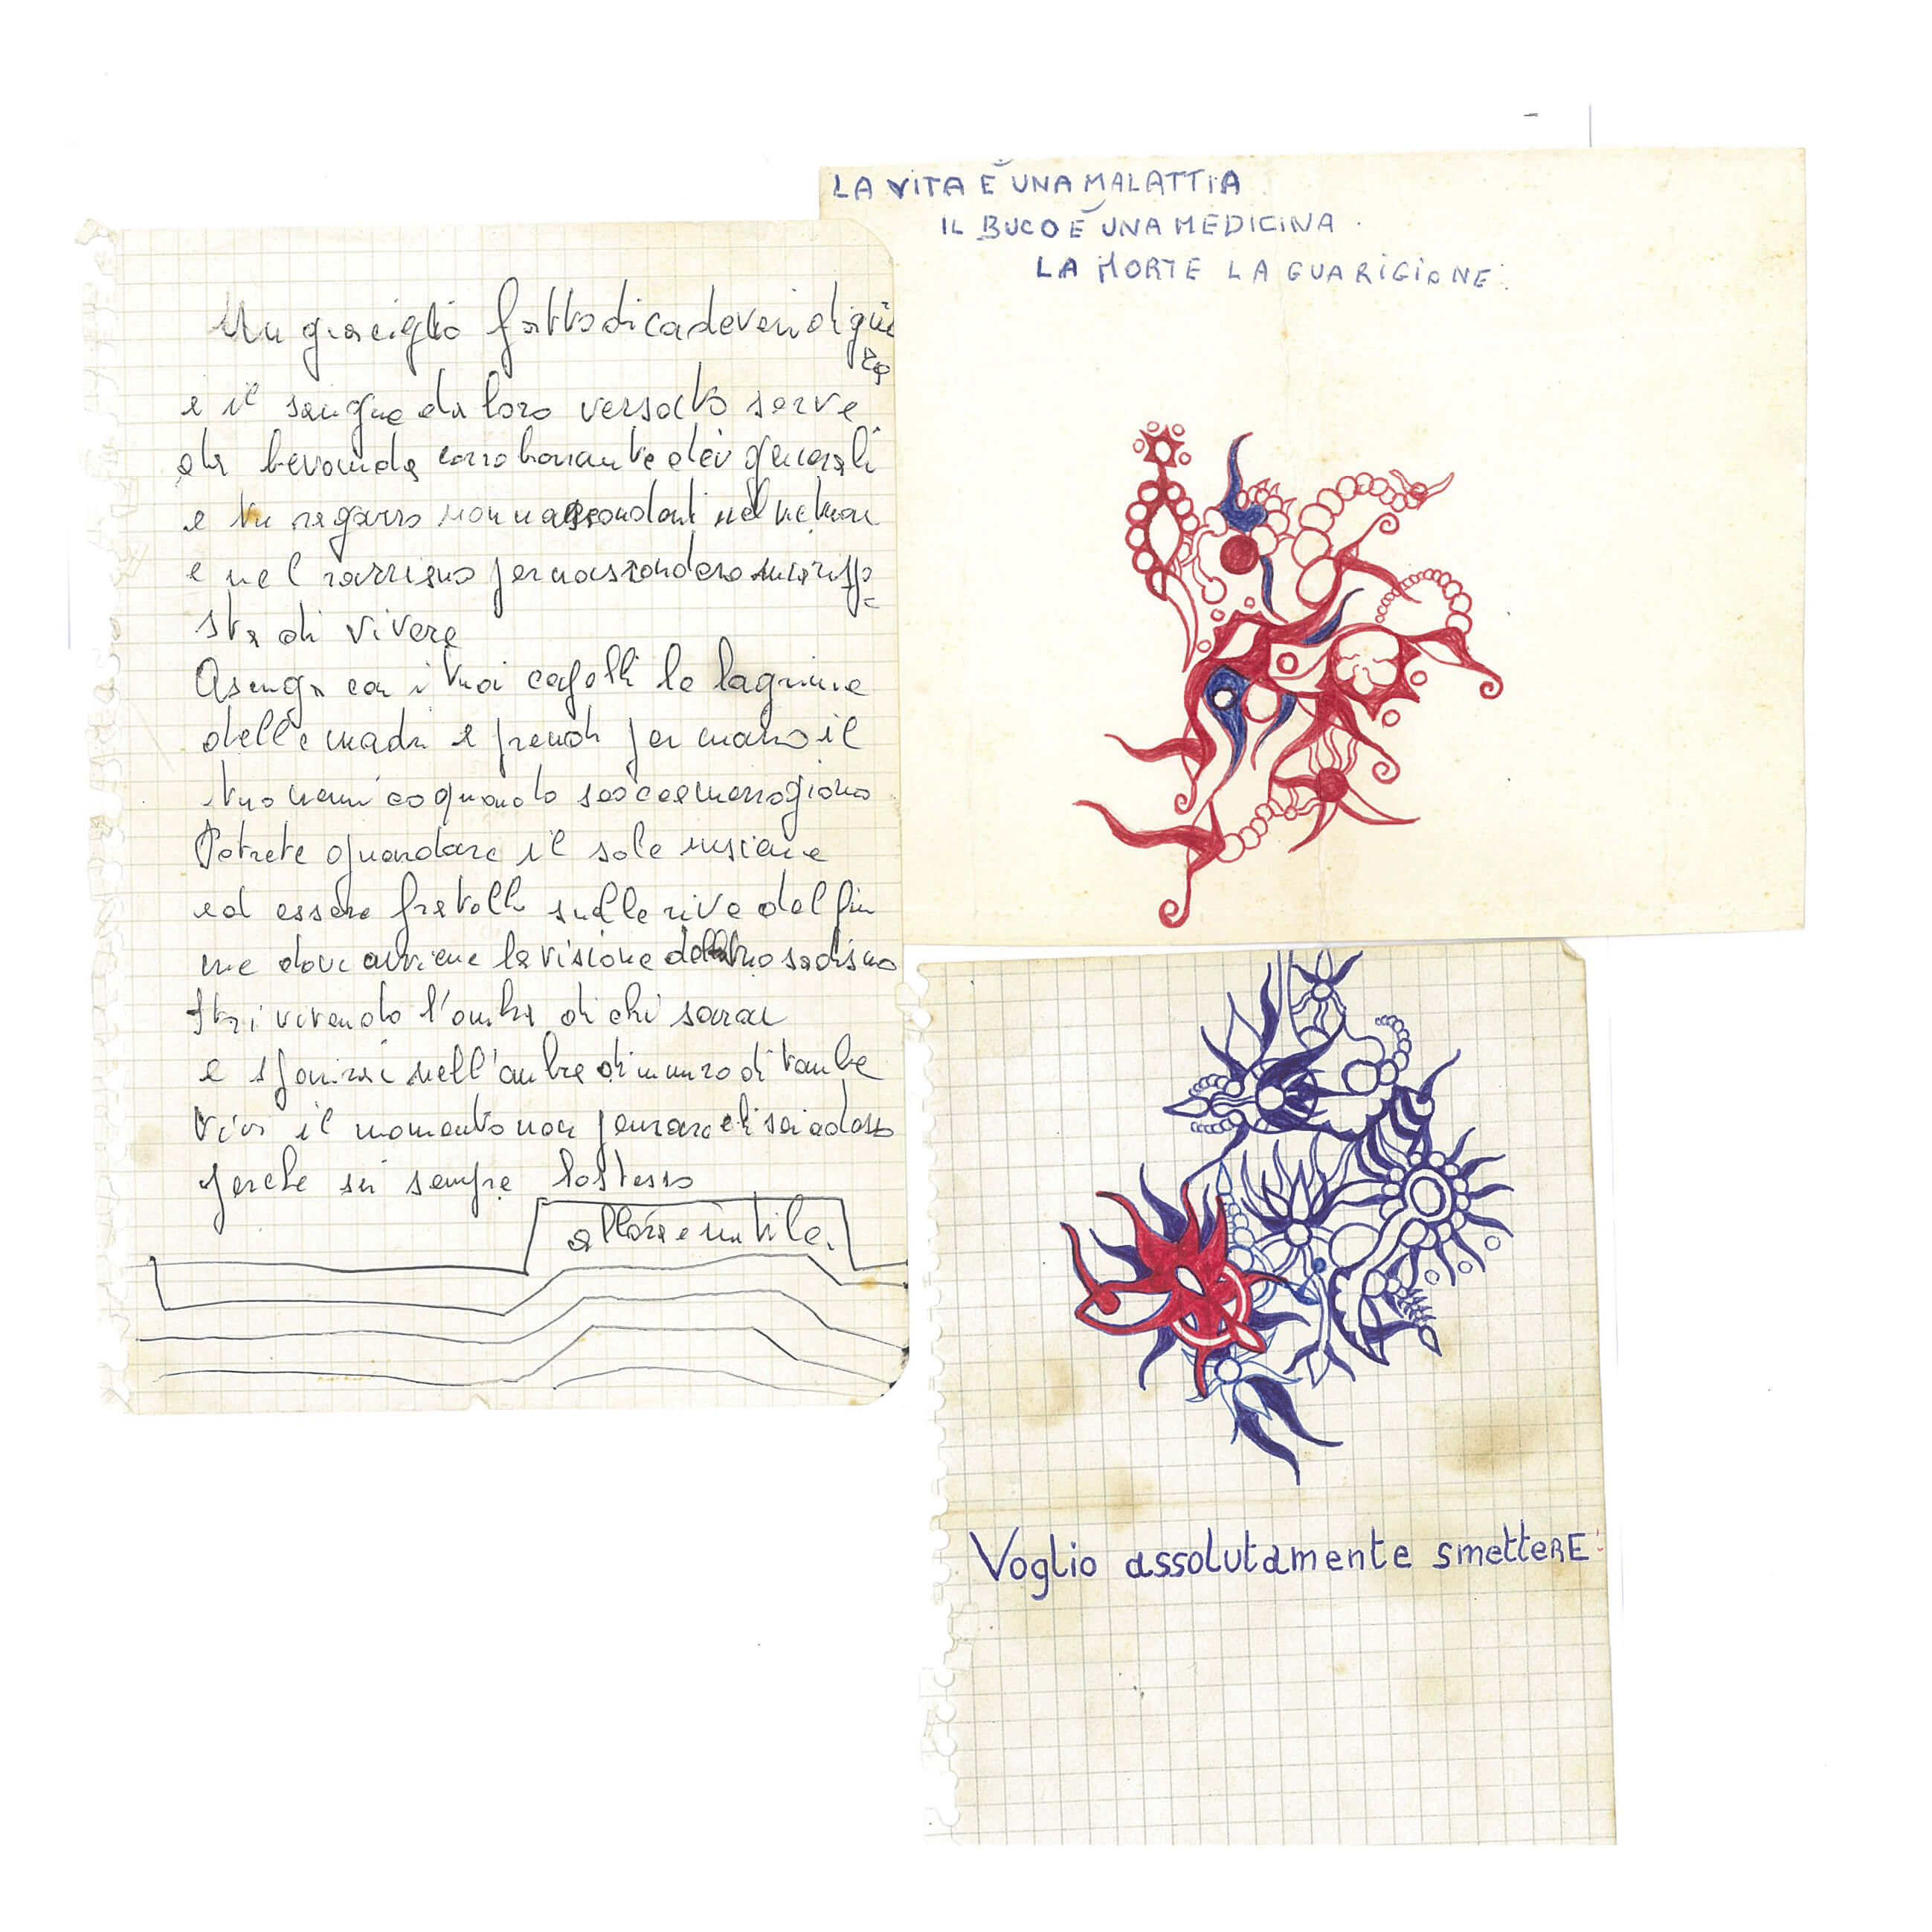 Un giaciglio fatto di cadeveri di gue
ra
e il sangue da loro versato serve
da bevanda corroborante dei generali
e tu ragazzo non nasconderti nel
e nel per nascondere
sta di vivere
Asciuga con i tuoi capelli le lagrime
delle madri e prendi per mano il
tuo nemico quando
Potrete guardare il sole insieme
ed essere fratelli sulle rive del fiu
me dove avviene la visione del tuo sadismo
Stai vivendo l'ombra di chi sarai
e sparirai nell'ombra di un muro di tombe
Vivi il momento non pensare chi sei adesso
perche sei sempre lo stesso
allora e inutile.
LA VITA È UNA MALATTIA
IL BUCO È UNA MEDICINA.
LA MORTE LA GUARIGIONE.
Voglio assolutamente smettere